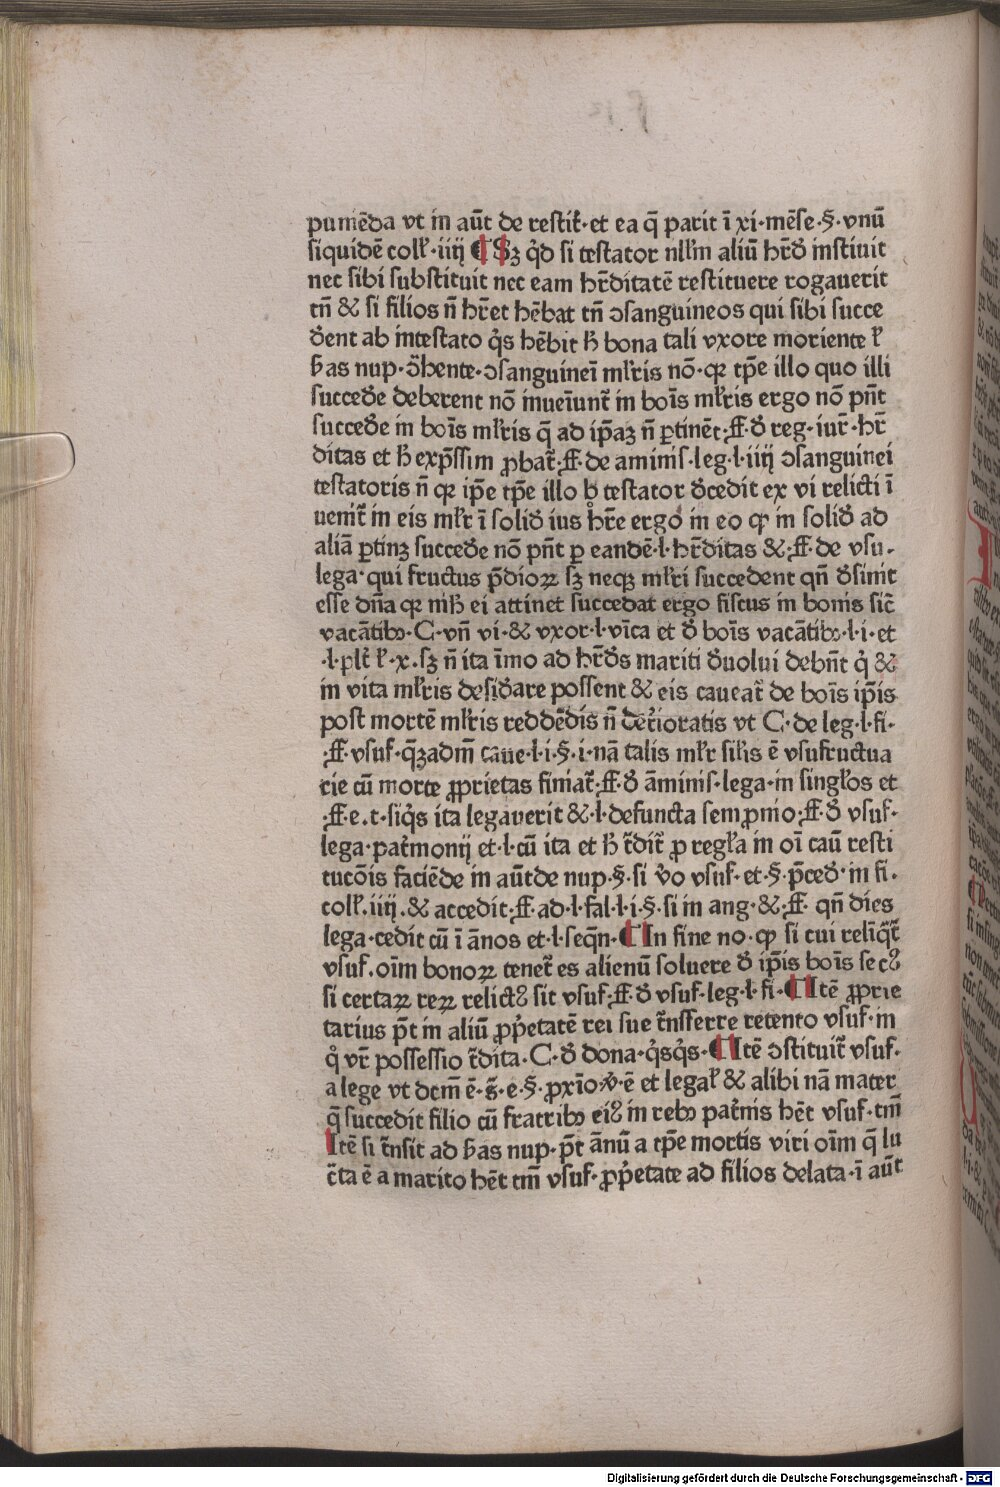 puniēda vt in aūt de restit̄·et ea q̄ parit ī xi·mēse·§·vnū
siquidē coll̄·iiij ¶ Sꝫ qͥd si testator nll̄m aliū hr̄d̄ instiuit
nec sibi substituit nec eam hr̄ditatē restituere rogauerit
tn̄ & si filios n̄ hr̄et hēbat tn̄ ɔsanguineos qui sibi succe
d̄ent ab intestato qͥs hēbit h̄ bona tali vxore moriente l̄
ƀas nup·ɔ̄hente·ɔsanguineī ml̄ris nō·qꝛ tp̄e illo quo illi
succed̄e deberent nō inueīunt̄ in boīs ml̄ris ergo nō pn̄t
succed̄e in boīs ml̄ris q̄ ad ip̄aꝫ n̄ ꝑtinēt·ff·d̄ reg·iur̄·hr̄
ditas et h̄ exp̄ssim ꝓbat̄·ff·de aminis·leg·l·iiij ɔsanguinei
testatoris n̄ qꝛ ip̄e tp̄e illo ꝙ testator d̄cedit ex vi relicti ī
uenit̄ in eis ml̄r ī solid̄ ius hr̄e ergo in eo ꝙ in solid̄ ad
aliā ꝑtinꝫ succed̄e nō pn̄t ꝑ eandē·l·hr̄ditas &·ff·de vsu·
lega·qui fructus p̄dioꝝ sꝫ neqꝫ ml̄ri succedent qn̄ d̄sinit
esse dn̄a qꝛ nih̄ ei attinet succedat ergo fiscus in bonis sic̄
vacātibꝰ·C·vn̄ vi·& vxor·l·vīca et d̄ boīs vacātibꝰ·l·i·et
·l·plt̄ l̄·x·sꝫ n̄ ita īmo ad hr̄d̄s mariti d̄uolui debn̄t qͥ &
in vita ml̄ris desid̄are possent & eis caueat̄ de boīs ip̄is
post mortē ml̄ris reddēdis n̄ det̄ioratis vt C·de leg·l·fi·
·ff·vsuf·q̄ꝫadm̄ caue·l·i·§·i·nā talis ml̄r sil̄is ē vsufructua
rie cū morte ꝓprietas finiat̄·ff·d̄ āminis·lega·in singl̄os et
·ff·e·t·siqͥs ita legauerit &·l·defuncta sempronio·ff·d̄ vsuf·
lega·pat̄monij et·l·cū ita et h̄ t̄dit̄ ꝓ regl̄a in oī caū resti
tucōis faciēde in aūtde nup·§·si v̄o vsuf·et·§·p̄ced̄·in fi·
coll̄·iiij·& accedit·ff·ad·l·fal·l·i·§·si in ang·&·ff·qn̄ dies
lega·cedit cū ī ānos et·l·seq̄n·¶ In fine no·ꝙ si cui relīqͥt̄
vsuf·oīm bonoꝝ tenet̄ es alienū soluere d̄ ip̄is boīs secꝰ
si certaꝝ reꝝ relictꝰ sit vsuf·ff·d̄ vsuf·leg·l·fi·¶ Itē ꝓprie
tarius p̄t in aliū ꝓp̄etatē rei sue t̄nsferre retento vsuf·in
qͦ vr̄ possessio t̄dita·C·d̄ dona·qͥsqͥs·¶ Itē ɔstituit̄ vsuf·
a lege vt dcm̄ ē·s̄·e·§·ꝓxīo·v̄·ē et legal̄ & alibi nā mater
q̄ succedit filio cū fratribꝰ eiꝰ in rebꝰ pat̄nis hēt vsuf·tm̄
Itē si t̄nsit ad ƀas nup·p̄t ānū a tp̄e mortis viri oīm q̄ lu
c̄ta ē a marito hēt tm̄ vsuf·ꝓp̄etate ad filios delata·ī aūt
Digitalisierung gefördert durch die Deutsche Forschungsgemeinschaft - DFG